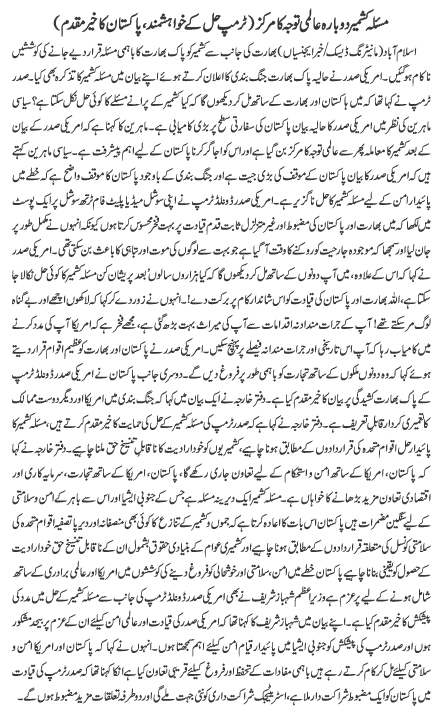 مسئلہ کشمیر دوبارہ عالمی توجہ کا مرکز (ٹرمپ حل کے خواہشمند، پاکستان کا خیر مقدم)
اسلام آباد (مانیٹرنگ ڈیسک/خبر ایجنسیاں) بھارت کی جانب سے کشمیر کو پاک بھارت کا باہمی مسئلہ قرار دیے جانے کی کوششیں
ناکام ہو گئیں۔ امریکی صدر نے حالیہ پاک بھارت جنگ بندی کا اعلان کرتے ہوئے اپنے بیان میں مسئلہ کشمیر کا تذکرہ بھی کیا۔
ٹرمپ نے کہا تھا کہ میں پاکستان اور بھارت کے ساتھ مل کر دیکھوں گا کہ کیا کشمیر کے پرانے مسئلے کا کوئی حل نکل سکتا ہے؟ سیاسی
ماہرین کی نظر میں امریکی صدر کا حالیہ بیان پاکستان کی سفارتی سطح پر بڑی کامیابی ہے۔ ماہرین کا کہنا ہے کہ امریکی صدر کے بیان
کے بعد کشمیر کا معاملہ پھر سے عالمی توجہ کا مرکز بن گیا ہے اور اس کو اجاگر کرنا پاکستان کے لیے اہم پیشرفت ہے۔ سیاسی ماہرین کہتے
ہیں کہ امریکی صدر کا بیان پاکستان کے موقف کی بڑی جیت ہے اور جنگ بندی کے باوجود پاکستان کا موقف واضح ہے کہ خطے میں
پائیدار امن کے لیے مسئلہ کشمیر کا حل ناگزیر ہے۔ امریکی صدر ڈونلڈ ٹرمپ نے اپنی سوشل میڈیا پلیٹ فام ٹرتھ سوشل پر ایک پوسٹ
میں لکھا کہ میں بھارت اور پاکستان کی مضبوط اور غیر متزلزل ثابت قدم قیادت پر بہت فخر محسوس کرتا ہوں کیونکہ انہوں نے مکمل طور پر
جان لیا اور سمجھا کہ موجودہ جارحیت کو روکنے کا وقت آ گیا ہے جو بہت سے لوگوں کی موت اور تباہی کا باعث بن سکتی تھی۔ امریکی صدر
نے کہا کہ اس کے علاوہ، میں آپ دونوں کے ساتھ مل کر دیکھوں گا کہ کیا ہزاروں سالوں بعد پریشان کن مسئلہ کشمیر کا کوئی حل نکالا جا
سکتا ہے، اللہ بھارت اور پاکستان کی قیادت کو اس شاندار کام پر برکت دے!۔ انہوں نے زور دے کر کہا کہ لاکھوں اچھے اور بے گناہ
لوگ مر سکتے تھے! آپ کے جرات مندانہ اقدامات سے آپ کی میراث بہت بڑھ گئی ہے، مجھے فخر ہے کہ امریکا آپ کی مدد کرنے
میں کامیاب رہا کہ آپ اس تاریخی اور جرات مندانہ فیصلے پر پہنچ سکیں۔ امریکی صدر نے پاکستان اور بھارت کو عظیم اقوام قرار دیتے
ہوئے کہا کہ وہ دونوں ملکوں کے ساتھ تجارت کو باہمی طور پر فروغ دیں گے۔ دوسری جانب پاکستان نے امریکی صدر ڈونلڈ ٹرمپ
کے پاک بھارت کشیدگی پر بیان کا خیر مقدم کیا ہے۔ دفتر خارجہ نے ایک بیان میں کہا کہ جنگ بندی میں امریکا اور دیگر دوست ممالک
کا تعمیری کردار قابل تعریف ہے۔ دفتر خارجہ نے کہا ہے کہ صدر ٹرمپ کی مسئلہ کشمیر کے حل کی حمایت کا خیر مقدم کرتے ہیں، مسئلہ کشمیر کا
پائیدار حل اقوام متحدہ کی قراردادوں کے مطابق ہونا چاہیے، کشمیریوں کو خودارادیت کا ناقابل تنسیخ حق ملنا چاہیے۔ دفتر خارجہ نے
کہا کہ پاکستان، امریکا کے ساتھ امن و استحکام کے لیے تعاون جاری رکھے گا، پاکستان، امریکا کے ساتھ تجارت، سرمایہ کاری اور
اقتصادی تعاون مزید بڑھانے کا خواہاں ہے۔ مسئلہ کشمیر ایک دیرینہ مسئلہ ہے جس کے جنوبی ایشیا اور اس سے باہر کے امن و سلامتی
کے لیے سنگین مضمرات ہیں پاکستان اس بات کا اعادہ کرتا ہے کہ جموں و کشمیر کے تنازع کا کوئی بھی منصفانہ اور دیرپا تصفیہ اقوام متحدہ کی
سلامتی کونسل کی متعلقہ قراردادوں کے مطابق ہونا چاہیے اور کشمیری عوام کے بنیادی حقوق بشمول ان کے ناقابل تنسیخ حق خودارادیت
کے حصول کو یقینی بنانا چاہیے پاکستان خطے میں امن، سلامتی اور خوشحالی کو فروغ دینے کی کوششوں میں امریکا اور عالمی برادری کے ساتھ
شامل ہونے کے لیے پر عزم ہے وزیر اعظم شہباز شریف نے بھی امریکی صدر ڈونلڈ ٹرمپ کی جانب سے مسئلہ کشمیر کے حل میں مدد کی
پیشکش کا خیر مقدم کیا ہے۔ اپنے بیان میں شہباز شریف نے کہا کہ امریکی صدر کی قیادت اور عالمی امن کے عزم پر بیحد مشکور
ہوں اور صدر ٹرمپ کی پیشکش کو جنوبی ایشیا میں پائیدار امن کے فروغ کیلئے اہم سمجھتا ہوں۔ انہوں نے کہا کہ پاکستان اور امریکا امن و
سلامتی کیلئے مل کر کام کرتے رہے ہیں باہمی مفادات کے تحفظ اور فروغ کیلئے قریبی تعاون کیا ہے انکا کہنا تھا کہ صدر ٹرمپ کی قیادت
میں پاکستان کو ایک مضبوط شراکت دار ملا ہے، اسٹریٹجک شراکت داری کو نئی جہت ملے گی اور دوطرفہ تعلقات مزید مضبوط ہوں گے۔